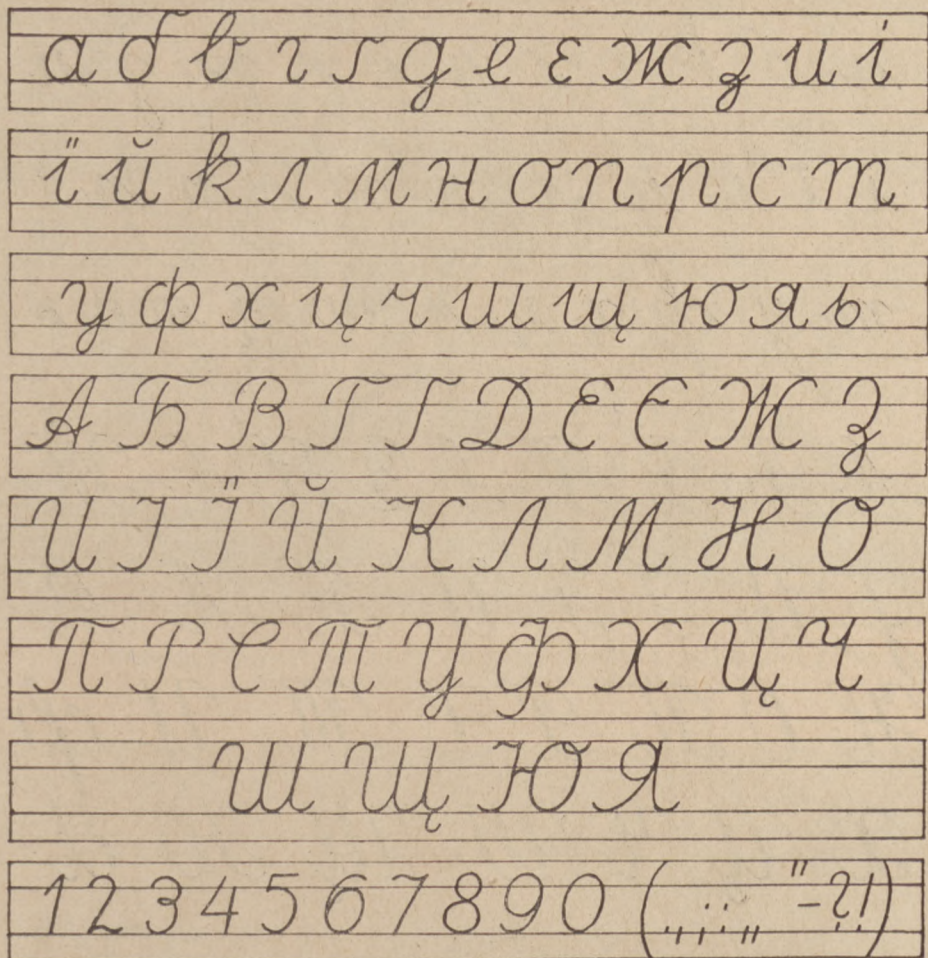 а б в г ґ д е є ж з и і
ї й к л м н о п р с т
у ф х ц ч ш щ ю я ь
А Б В Г Ґ Д Е Є Ж З
И І Ї Й К Л М Н О
П Р С Т У Ф Х Ц Ч
Ш Щ Ю Я
1 2 3 4 5 6 7 8 9 0 (. , ; : „ " - ? !)